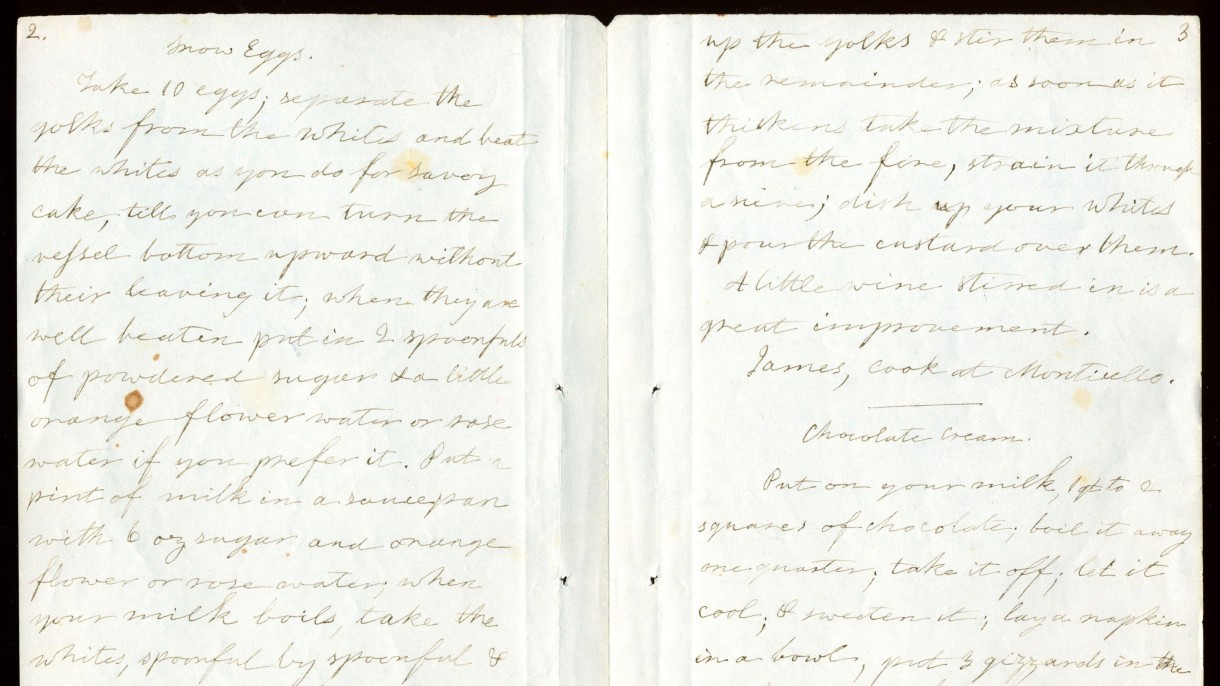 2.
Snow Eggs.
Take 10 eggs; separate the
yolks from the whites and beat
the whites as you do for savoy
cake, till you can turn the
vessel bottom upward without
their leaving it; when they are
well beaten put in 2 spoonfuls
of powdered sugar & a little
orange flower water or rose
water if you prefer it. Put a
pint of milk in a saucepan
with 6 oz sugar and orange
flower or rose water; when
your milk boils, take the
whites, spoonful by spoonful &
3
up the yolks & stir them in
the remainder; as soon as it
thickens take the mixture
from the fire, strain it through
a sieve; dish up your whites
& pour the custard over them.
A little wine stirred in is a
great improvement.
James, cook at Monticello.
Chocolate Cream.
Put on your milk, 1 qt to 2
squares of chocolate; boil it away
one quarter; take it off; let it
cool; & sweeten it; lay a napkin
in a bowl, put 3 gizzards in the